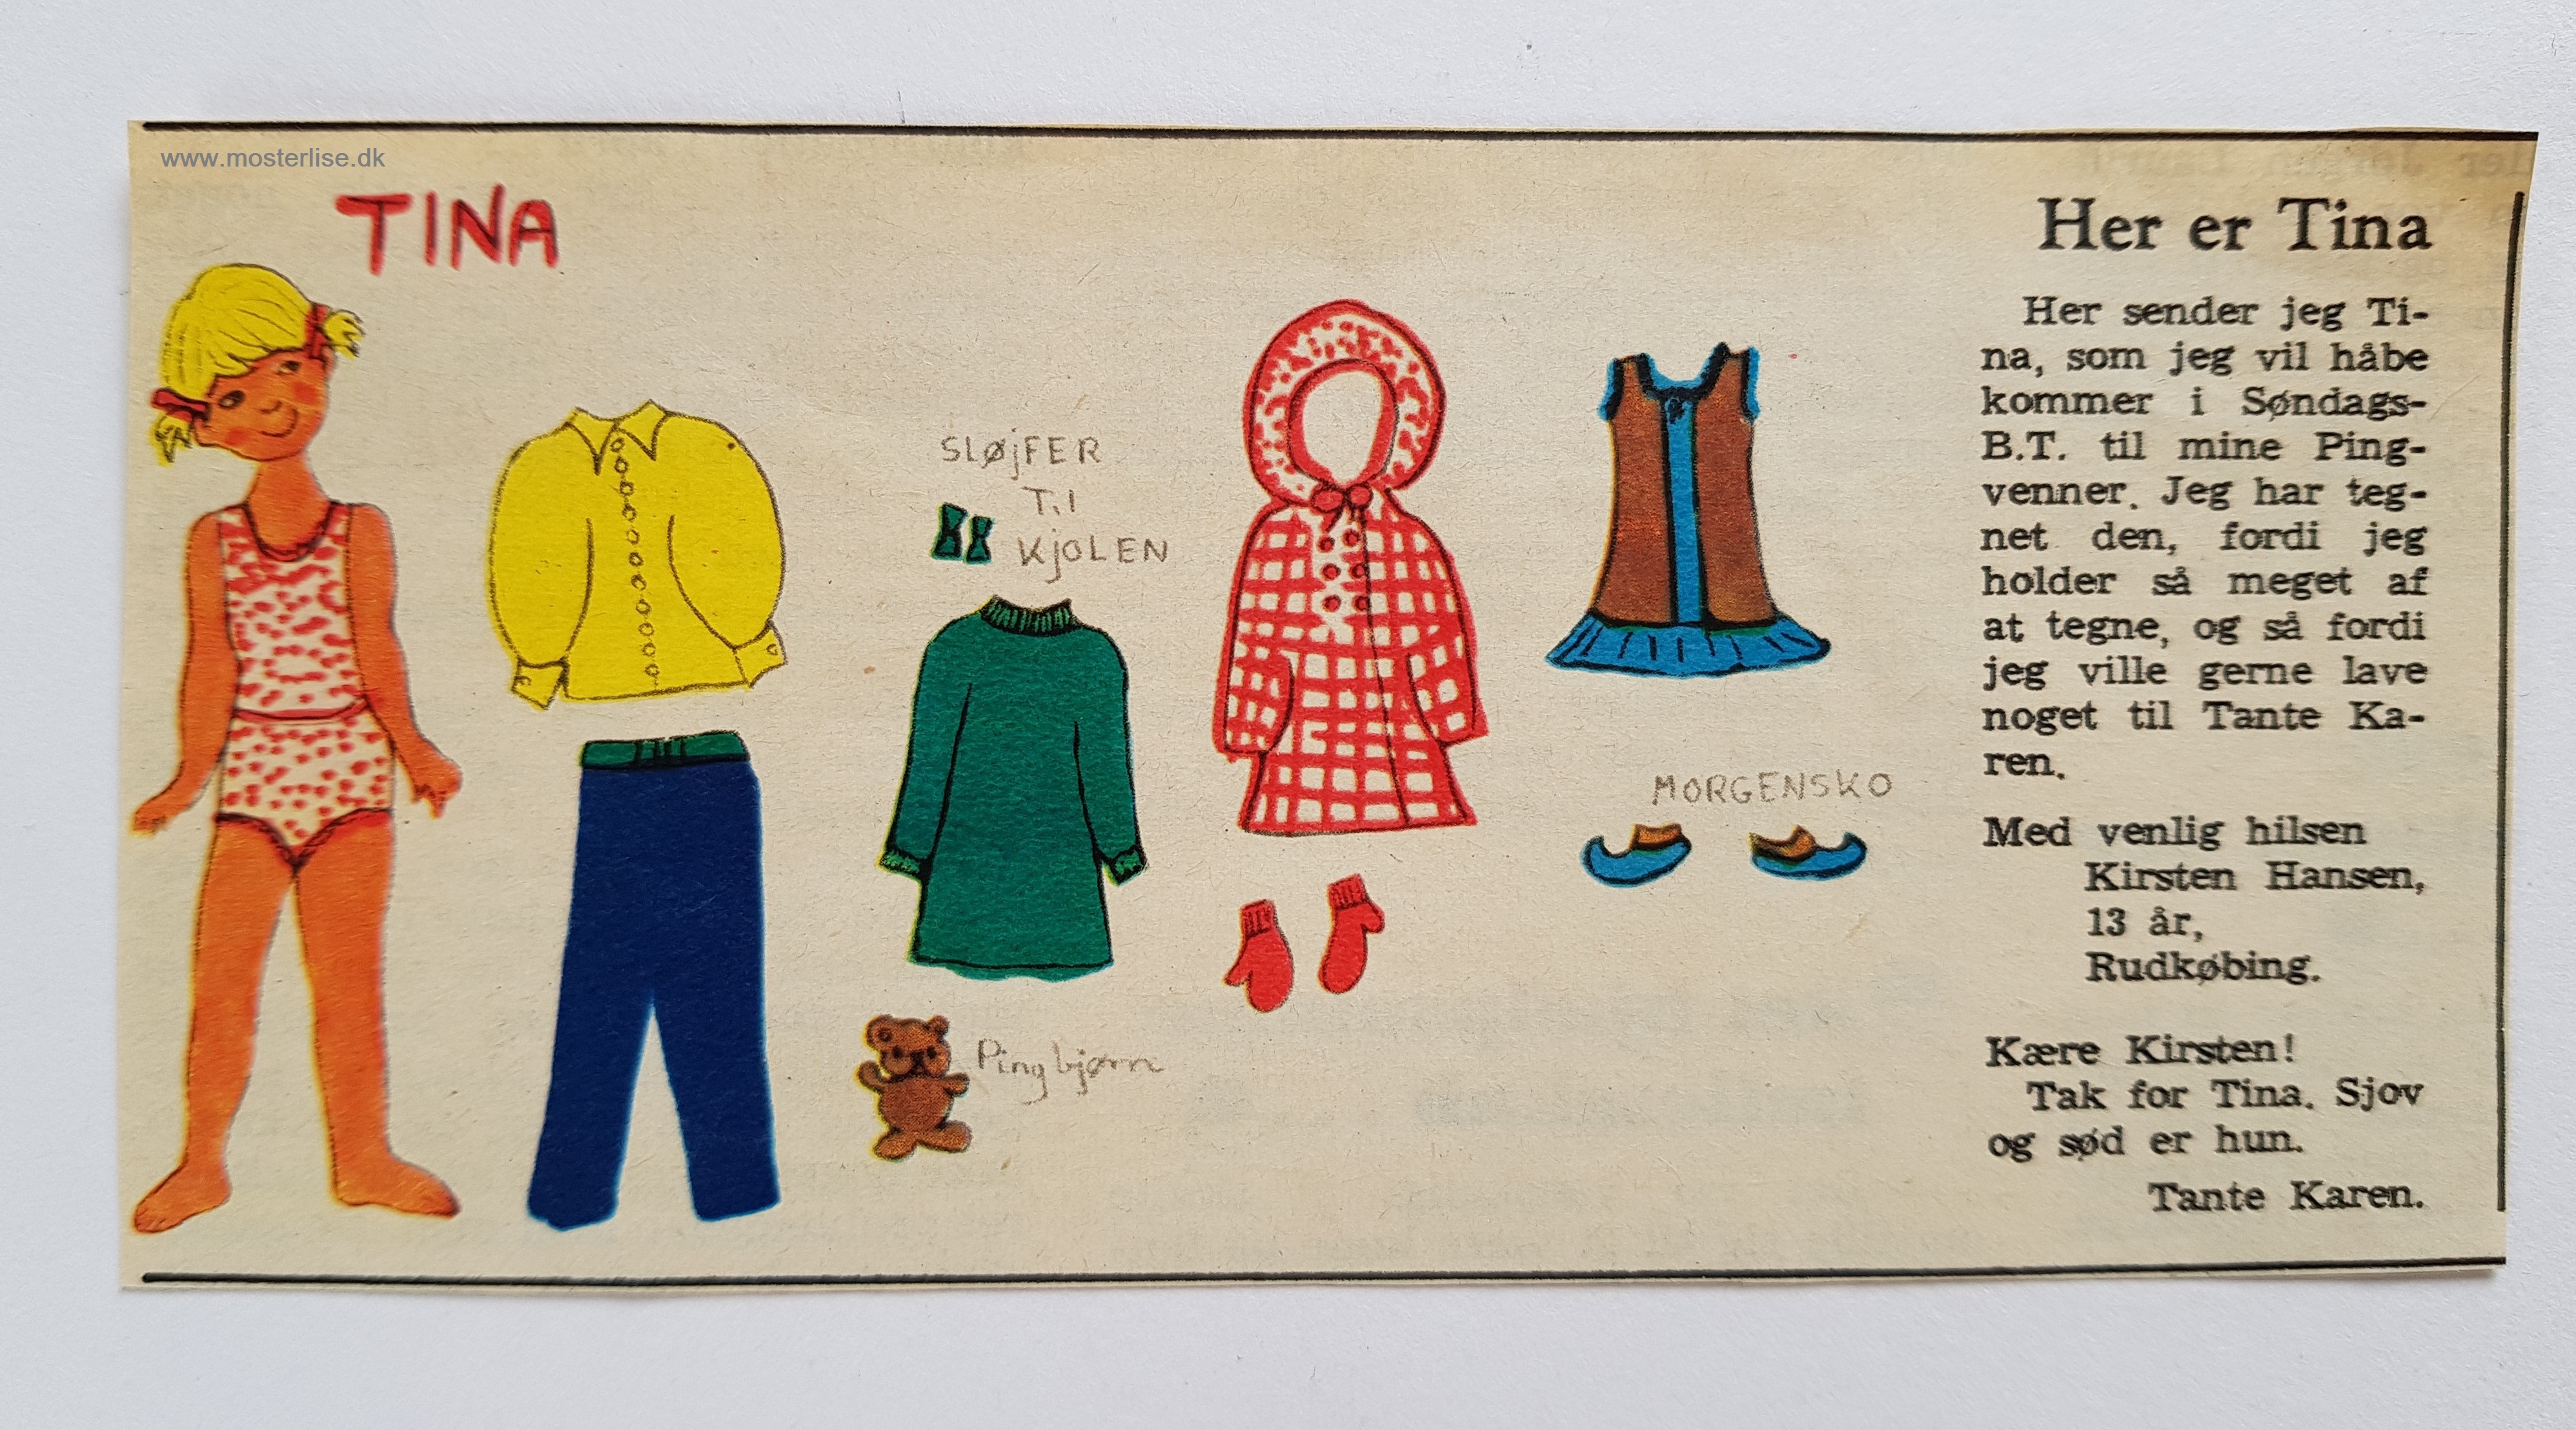 www.mosterlise.dk
TINA
SLØjFER
Til
KjOLEN
MORGENSKO
Pingbjørn
Her er Tina
Her sender jeg Ti-
na, som jeg vil håbe
kommer i Søndags-
B.T. til mine Ping-
venner. Jeg har teg-
net den, fordi jeg
holder så meget af
at tegne, og så fordi
jeg ville gerne lave
noget til Tante Ka-
ren.
Med venlig hilsen
Kirsten Hansen,
13 år,
Rudkøbing.
Kære Kirsten!
Tak for Tina. Sjov
og sød er hun.
Tante Karen.